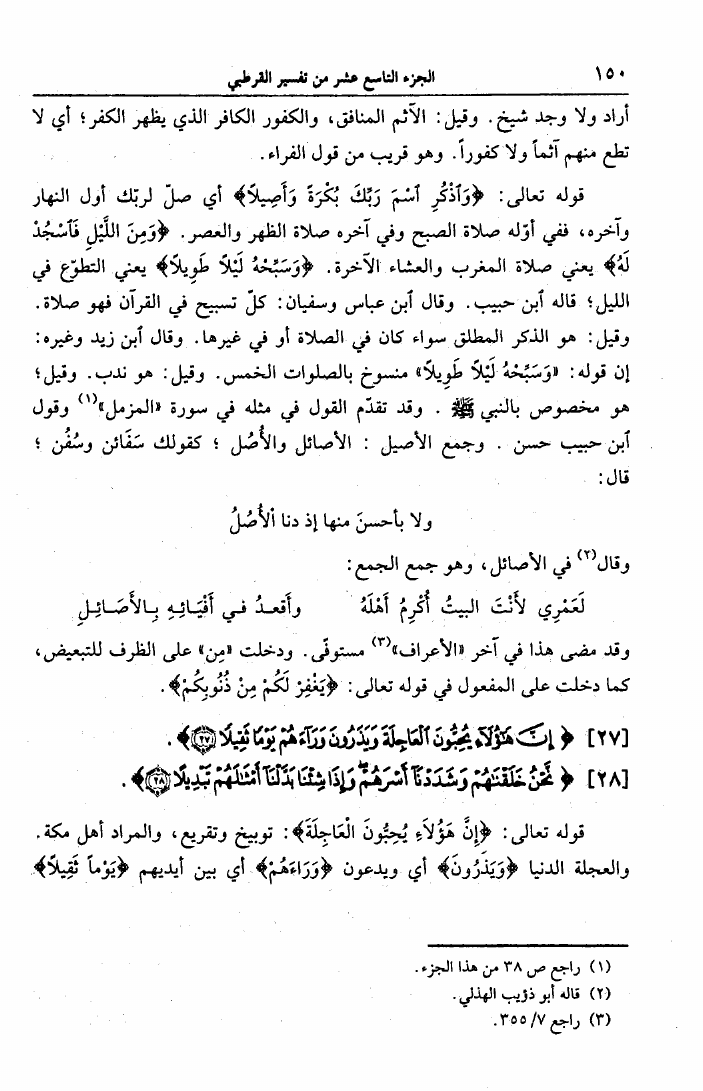 ١٥٠ الجزء التاسع عشر من تفسير القرطبي
أراد ولا وجد شيخ. وقيل: الآثم المنافق، والكفور الكافر الذي يظهر الكفر؛ أي لا
تطع منهم آثماً ولا كفوراً. وهو قريب من قول الفراء.
قوله تعالى: ﴿وَٱذْكُرِ ٱسْمَ رَبِّكَ بُكْرَةً وَأَصِيلاً﴾ أي صلّ لربّك أول النهار
وآخره، ففي أوّله صلاة الصبح وفي آخره صلاة الظهر والعصر. ﴿وَمِنَ اللَّيْلِ فَٱسْجُدْ
لَهُ﴾ يعني صلاة المغرب والعشاء الآخرة. ﴿وَسَبِّحْهُ لَيْلاً طَوِيلاً﴾ يعني التطوّع في
الليل؛ قاله ٱبن حبيب. وقال ٱبن عباس وسفيان: كلّ تسبيح في القرآن فهو صلاة.
وقيل: هو الذكر المطلق سواء كان في الصلاة أو في غيرها. وقال ٱبن زيد وغيره:
إن قوله: «وَسَبِّحْهُ لَيْلاً طَوِيلاً» منسوخ بالصلوات الخمس. وقيل: هو ندب. وقيل؛
هو مخصوص بالنبي ﷺ . وقد تقدّم القول في مثله في سورة «المزمل»(١) وقول
ٱبن حبيب حسن . وجمع الأصيل : الأصائل والأُصُل ؛ كقولك سَفَائن وسُفُن ؛
قال:
ولا بأحسنَ منها إذ دنا ٱلأُصُلُ
وقال(٢) في الأصائل، وهو جمع الجمع:
لَعَمْرِي لأَنْتَ البيتُ أُكْرِمُ أَهْلَهُ وأَقعدُ في أَفْيَائِهِ بِالأَصَائِلِ
وقد مضى هذا في آخر «الأعراف»(٣) مستوفًى. ودخلت «مِن» على الظرف للتبعيض،
كما دخلت على المفعول في قوله تعالى: ﴿يَغْفِرْ لَكُمْ مِنْ ذُنُوبِكُمْ﴾.
[٢٧] ﴿ إِنَّ هَٰٓؤُلَآءِ يُحِبُّونَ ٱلْعَاجِلَةَ وَيَذَرُونَ وَرَآءَهُمْ يَوْمًا ثَقِيلًا ٢٧﴾.
[٢٨] ﴿ نَّحْنُ خَلَقْنَٰهُمْ وَشَدَدْنَآ أَسْرَهُمْ ۖ وَإِذَا شِئْنَا بَدَّلْنَآ أَمْثَٰلَهُمْ تَبْدِيلًا ٢٨﴾.
قوله تعالى: ﴿إِنَّ هَؤُلاَءِ يُحِبُّونَ الْعَاجِلَةَ﴾: توبيخ وتقريع، والمراد أهل مكة.
والعجلة الدنيا ﴿وَيَذَرُونَ﴾ أي ويدعون ﴿وَرَاءَهُمْ﴾ أي بين أيديهم ﴿يَوْماً ثَقِيلاً﴾
(١) راجع ص ٣٨ من هذا الجزء.
(٢) قاله أبو ذؤيب الهذلي.
(٣) راجع ٧/ ٣٥٥.